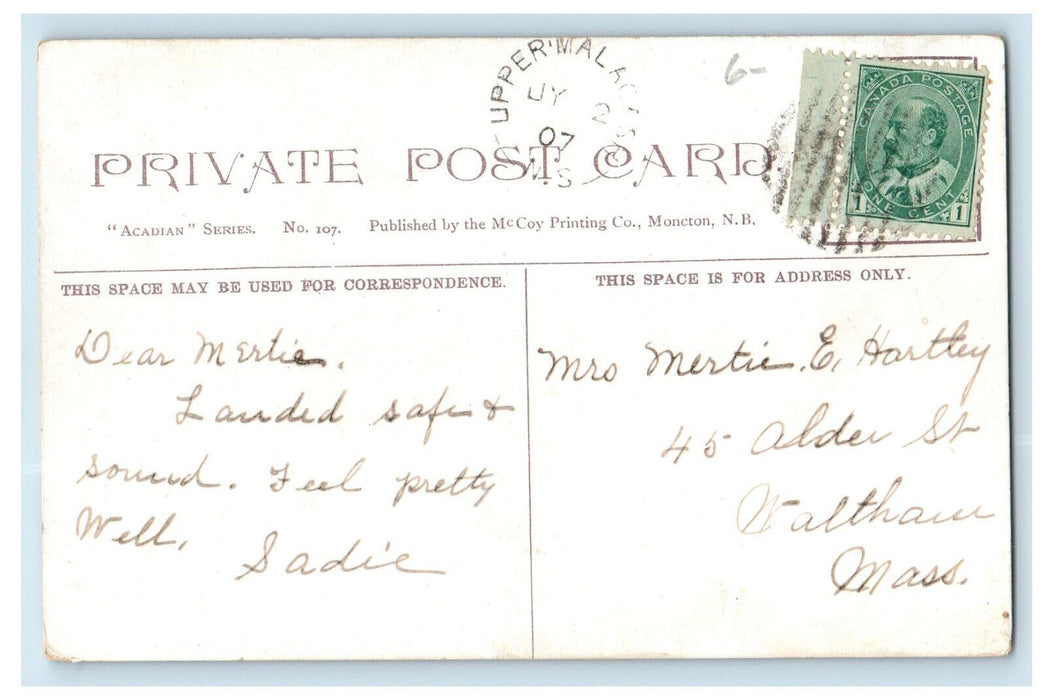 UPPER MALAGASH
JY 2
07
N.S
6-
CANADA POSTAGE
ONE CENT
1 1
PRIVATE POST CARD
"ACADIAN" SERIES. No. 107. Published by the McCoy Printing Co., Moncton, N.B.
THIS SPACE MAY BE USED FOR CORRESPONDENCE.
THIS SPACE IS FOR ADDRESS ONLY.
Dear Mertie.
Landed safe &
sound. Feel pretty
Well,
Sadie
Mrs Mertie. E. Hartley
45 Alder St
Waltham
Mass.